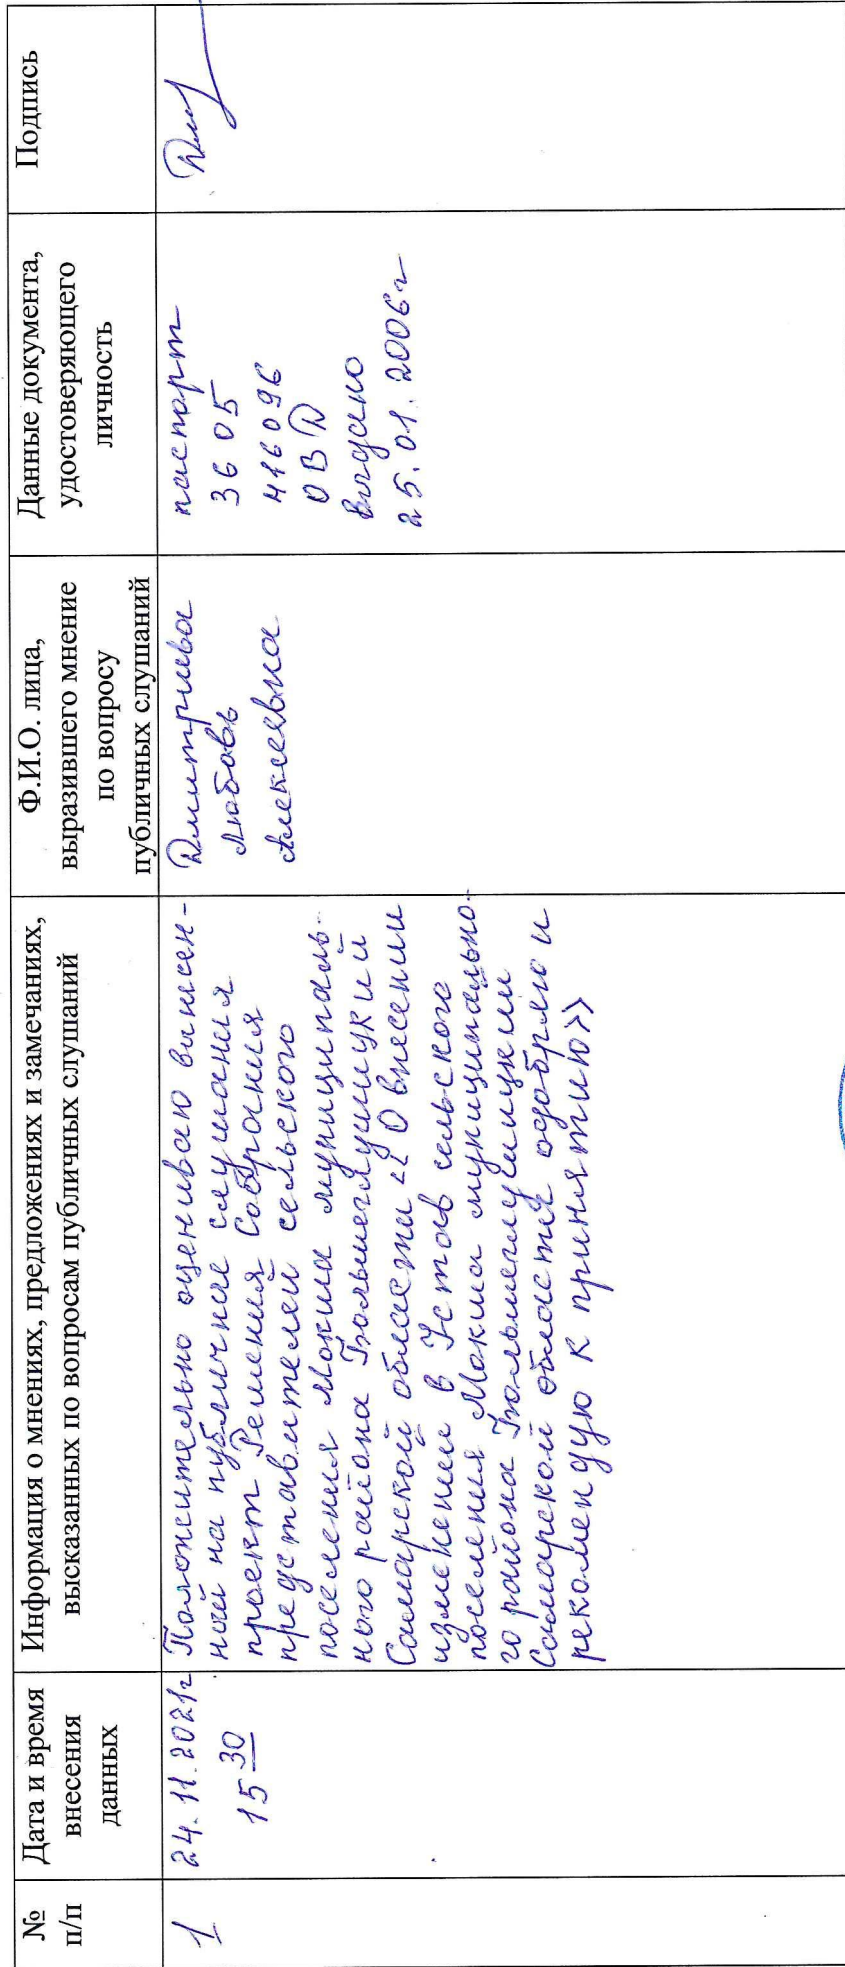 №
п/п
Дата и время
внесения
данных
Информация о мнениях, предложениях и замечаниях,
высказанных по вопросам публичных слушаний
Ф.И.О. лица,
выразившего мнение
по вопросу
публичных слушаний
Данные документа,
удостоверяющего
личность
Подпись
1
24.11.2021г
15 30
Положительно оцениваю вынесен-
ный на публичные слушания
проект Решения Собрания
представителей сельского
поселения Мокша муниципаль-
ного района Большеглушицкий
Самарской области «О внесении
изменений в Устав сельского
поселения Мокша муниципально-
го района Большеглушицкий
Самарской области одобряю и
рекомендую к принятию»
Дмитриева
Любовь
Алексеевна
паспорт
36 05
416096
ОВД
выдано
25.01.2006г